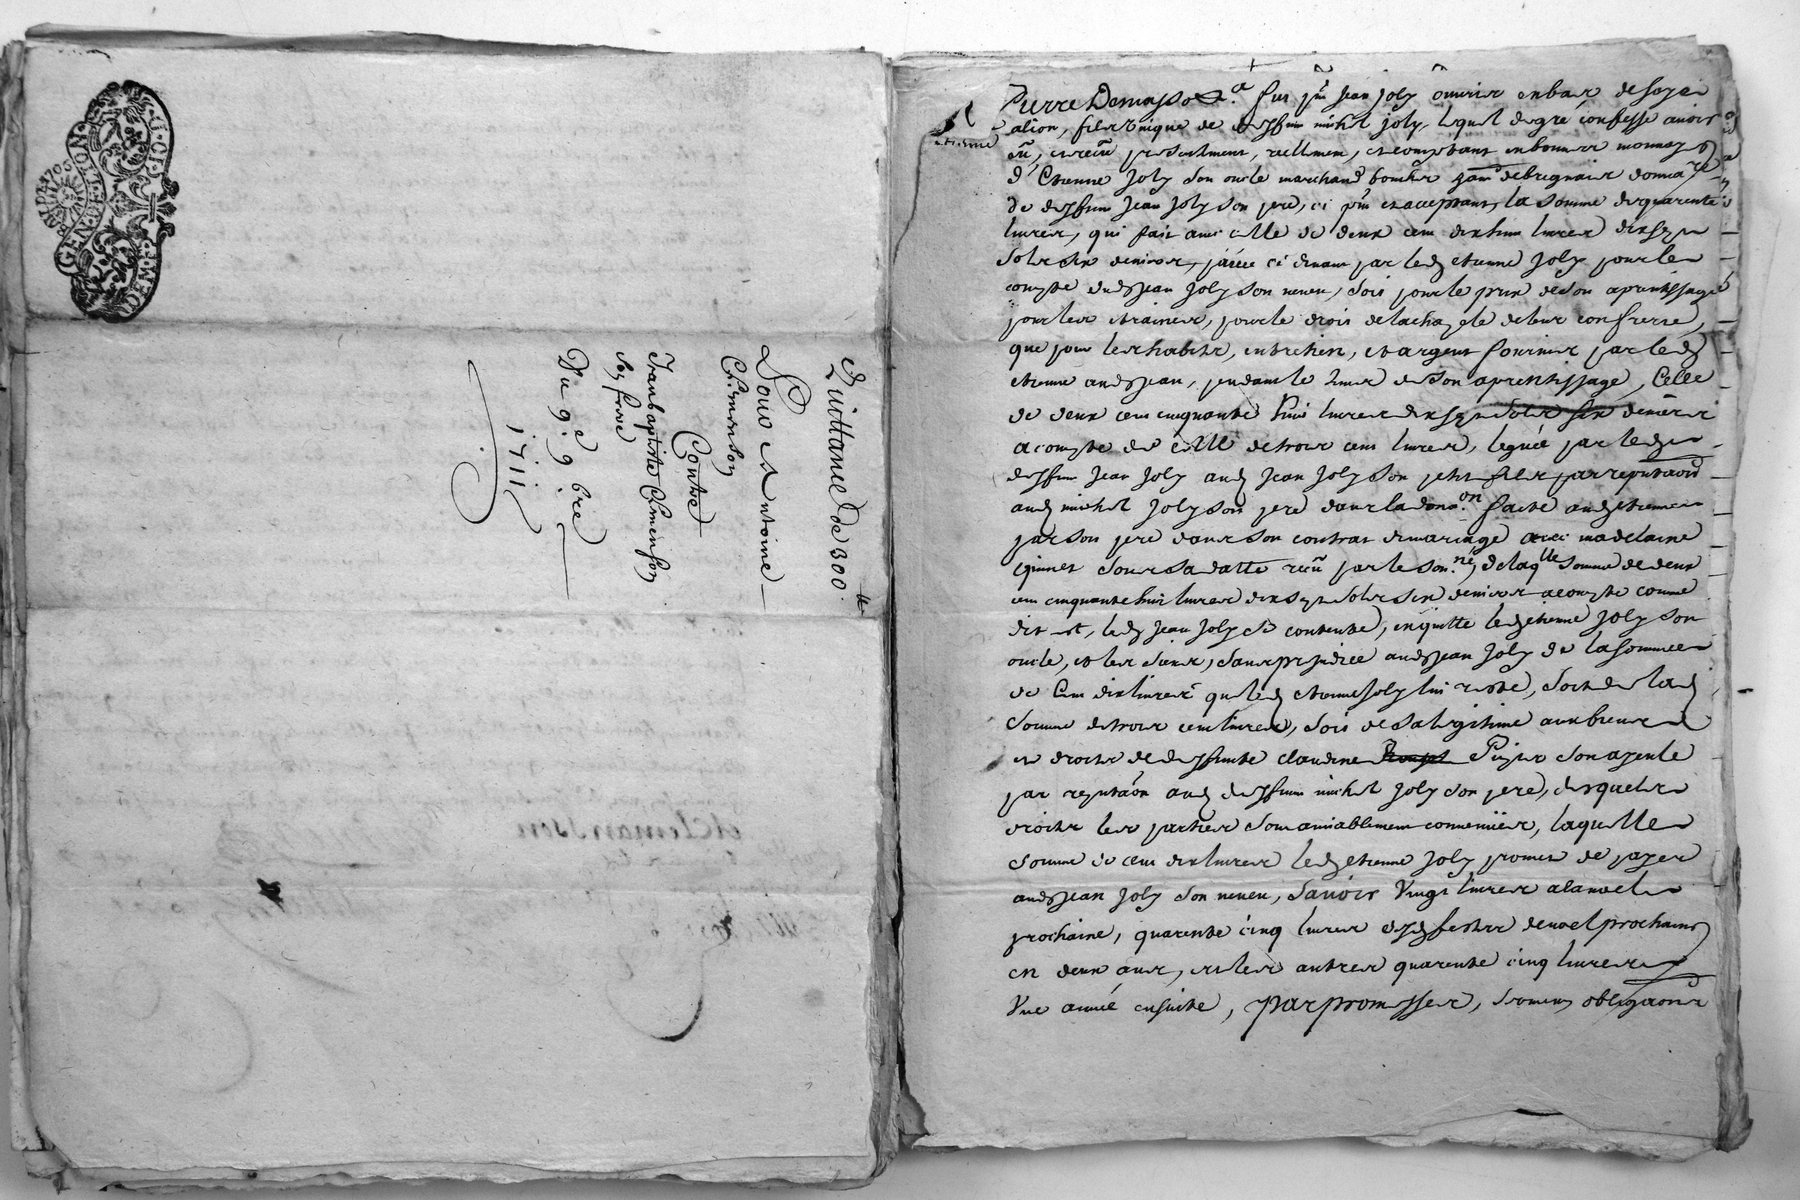 GENERATION
Quittance de 300 #
Louis et Antoine
Clemenson
Contre
Jean baptiste Clemenson
Son frere
Du 9.e 9bre
1711
Jean Joly ouvrier en bas de soye
alion, fils Unique de deffunt michel joly, lequel de gré confesse avoir
eu, et receu presentement, reellement, et comptant en bonnes monnoyes
d'Etienne Joly son oncle marchand boucher de brignais donnataire
de deffunt Jean Joly son pere, ci et acceptant, la somme de quarente
livres, qui fait avec celle de deux cent dixhuit livres dix sept
sols six deniers, payée ci devant par led Etienne Joly pour le
compte dud Jean Joly son neveu, soit pour le prix de son aprentissage
pour les etraines, pour le droit de la chapele de leur confrerie,
que pour les habits, entretien, et argent fournis par led
etienne aud Jean, pendant le tems de son aprentissage, Celle
de deux cent cinquante huit livres dix sept sols six deniers
a compte de celle de trois cent livres, leguée par led
deffunt Jean Joly aud Jean Joly son petit fils par reputaon
aud michel Joly son pere dans la dona.on faite aud etienne
par son pere dans son contrat de mariage avec madelaine
sous sa datte receu par le son.né, de laq.lle somme de deux
cent cinquante huit livres dix sept sols six deniers acompte comme
dit est, led Jean Joly se contente, en quitte led etienne Joly son
oncle, et les siens, sans prejudice aud Jean Joly de la somme
de Cent dix livres que led etienne Joly lui reste, soit de lad
somme de trois cent livres, soit de sa legitime aux biens
et droits de deffunte claudine son ayeule
par reputaon aud deffunt michel Joly son pere, desquels
droits les parties sont amiablement convenües, laquelle
somme de cent dix livres led etienne Joly promet de payer
aud Jean Joly son neveu, sçavoir Vingt livres a la noel
prochaine, quarente cinq livres festes de noel prochaines
en deux ans, et les autres quarente cinq livres
Une année ensuite, par promesses, obligaons